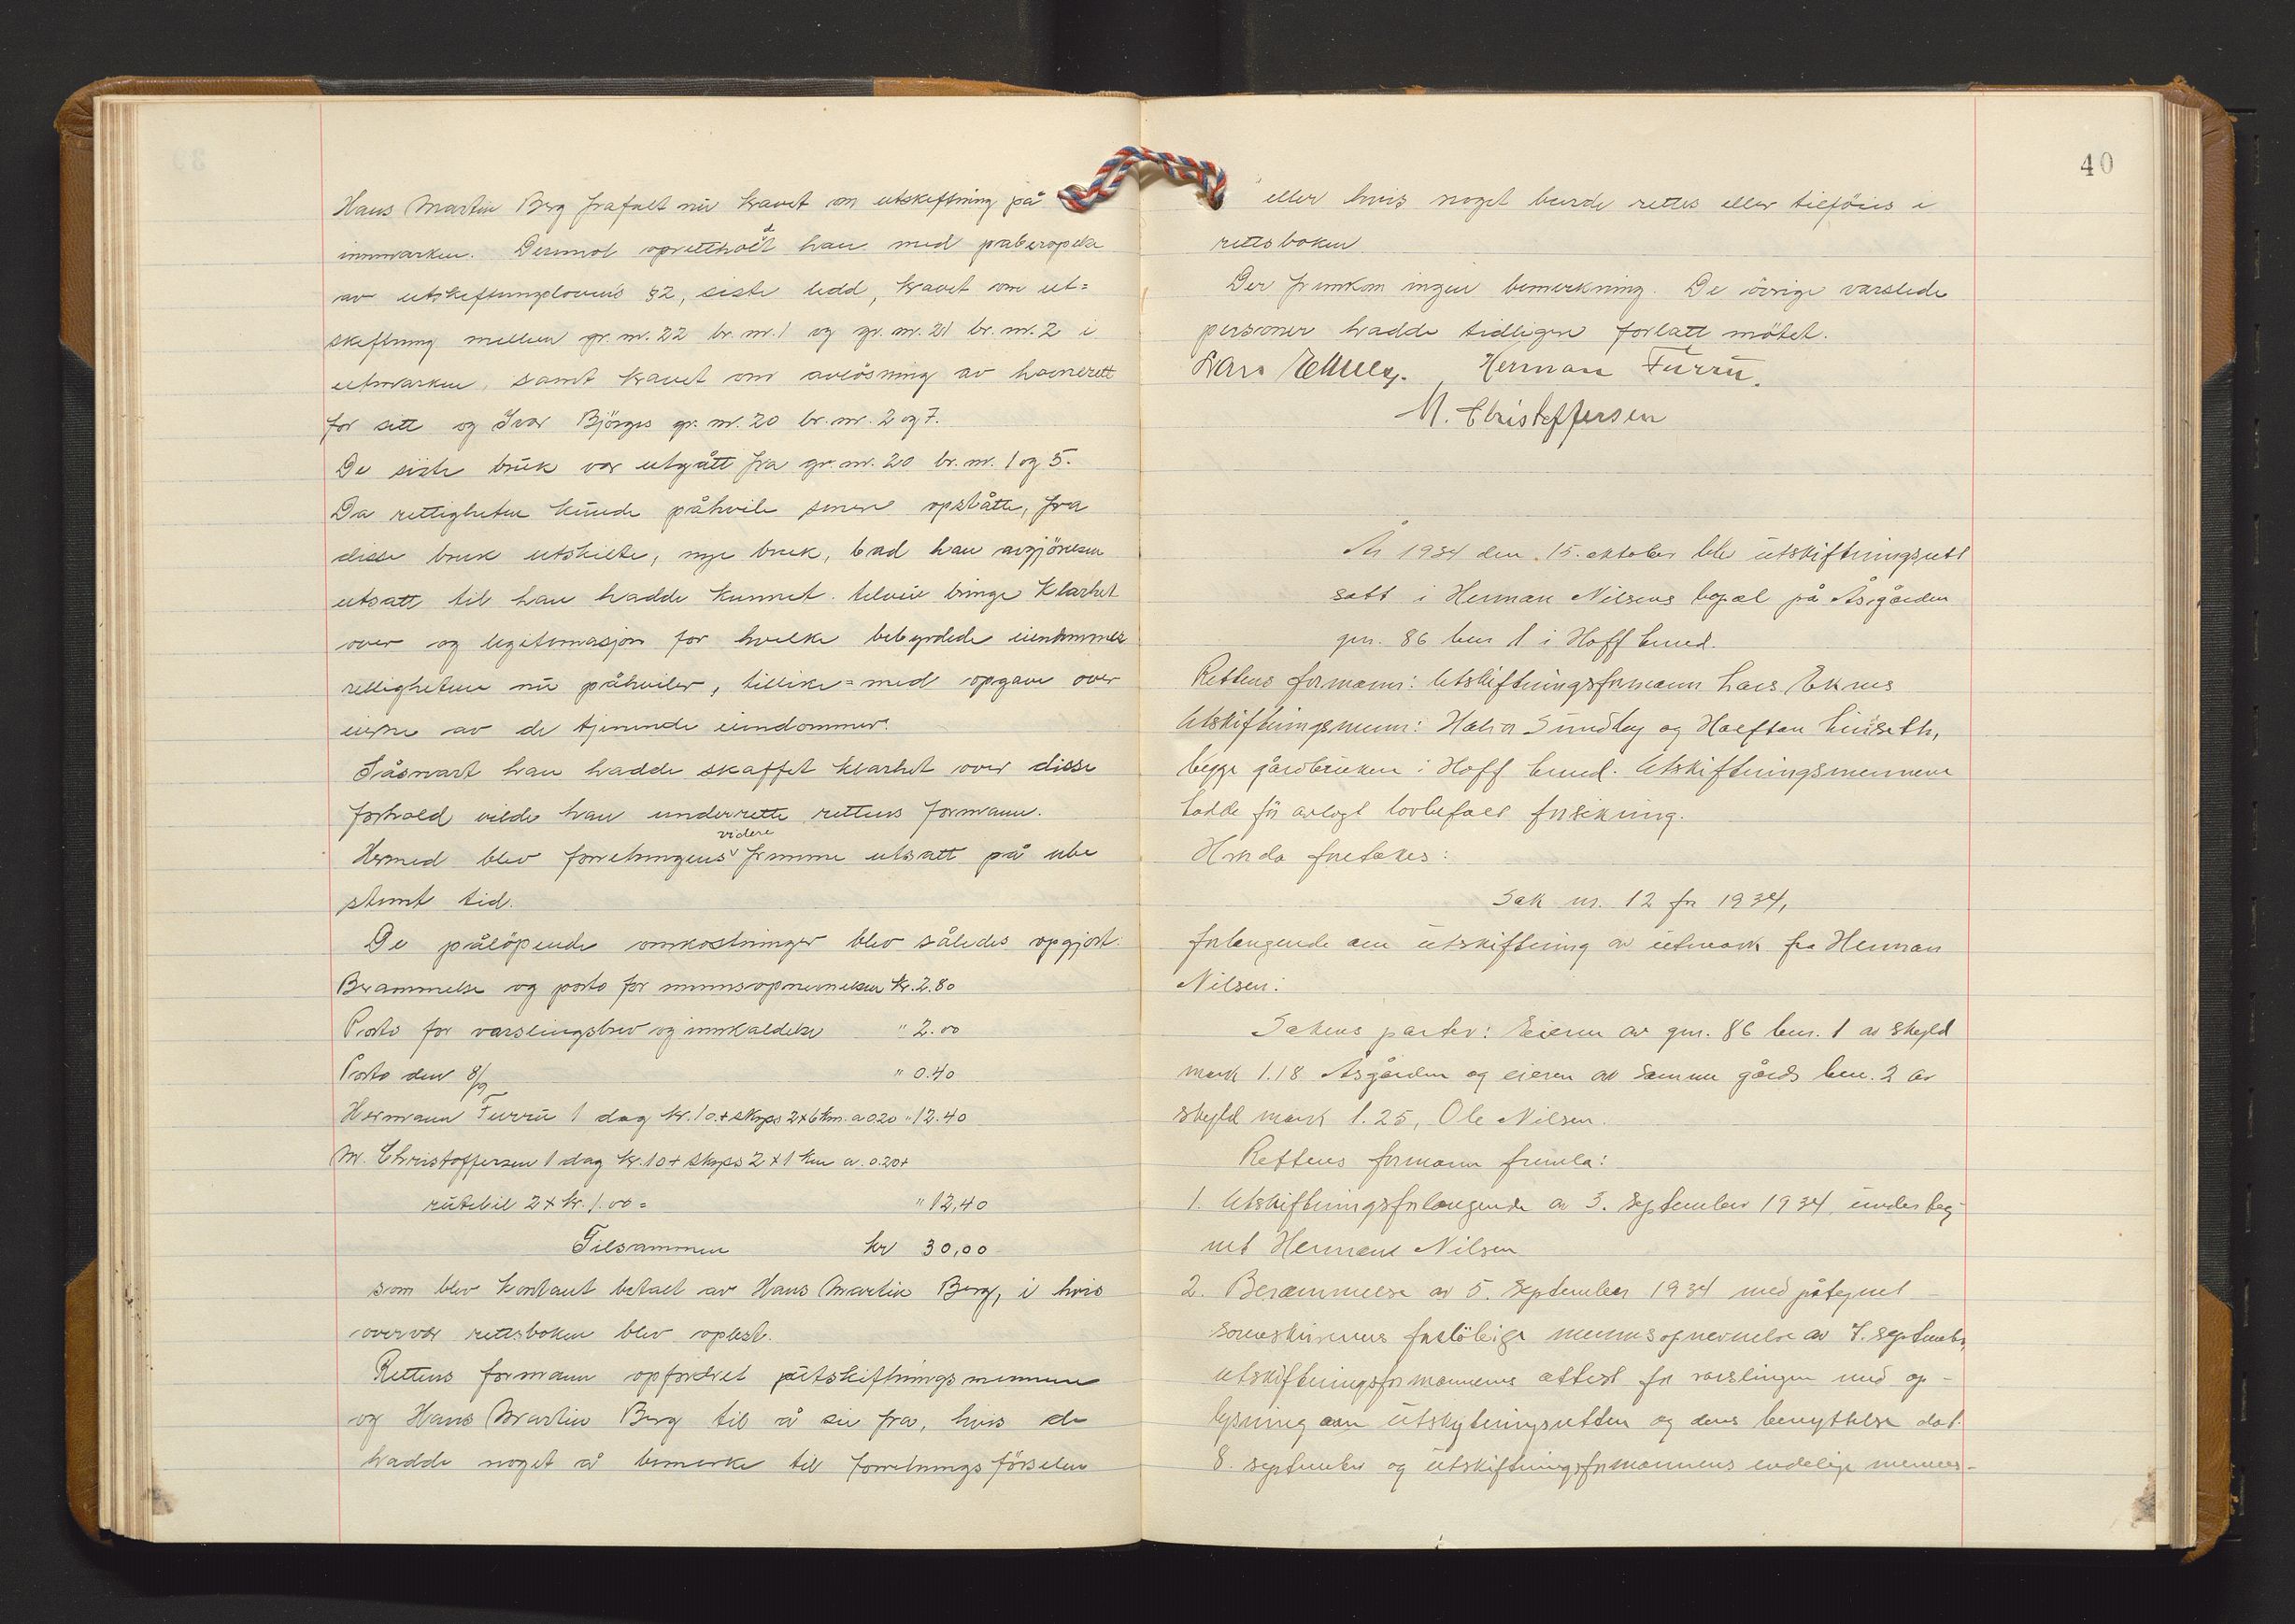 Hans Martin Berg frafalt nu kravet om utskiftning på
innmarken. Derimot oprettholdt han med påberopelse
av utskiftningslovens §2, siste ledd, kravet om ut=
skiftning mellem gr. nr. 22 br. nr. 1 og gr. nr. 21 br. nr. 2 i
utmarken, samt kravet om avløsning av havnerett
for sitt og Ivar Bjørges gr. nr. 20 br. nr. 2 og 7.
De siste bruk var utgått fra gr. nr. 20 br. nr. 1 og 5.
Da rettigheten kunde påhvile senere opståtte, fra
disse bruk utskilte, nye bruk, bad han avgjørelsen
utsatt til han hadde kunnet bringe klarhet
over og legitimasjon for hvilke bebyrdede eiendommer
rettigheten nu påhviler, tillike=med opgave over
eierne av de tjenende eiendommer.
Såsnart han hadde skaffet klarhet over disse
forhold vilde han underrette rettens formann.
videre
Hermed blev forretningens fremme utsatt på ube
stemt tid.
De påløpende omkostninger blev således opgjort:
Berammelse og porto for mennsopnevnelsen kr. 2.80
Porto for varslingsbrev og innkaldelse " 2.00
Porto den 8/9 " 0.40
Hermann Furru 1 dag kr. 10.+ skyss 2x6 km. a 0.20 " 12.40
M. Christoffersen 1 dag kr. 10 + skyss 2 x 1 km a. 0.20 +
rutebil 2 x kr. 1.00 = " 12,40
Tilsammen kr 30,00
som blev kontant betalt av Hans Martin Berg, i hvis
overvær rettsboken blev oplest.
Rettens formann opfordret utskiftningsmennene
og Hans Martin Berg til å sie fra, hvis de
hadde noget å bemerke til forretningsførselen
40
eller hvis noget burde rettes eller tilføies i
rettsboken
Der fremkom ingen bemerkning. De øvrige varslede
personer hadde tidligere forlatt møtet.
Lars Eknes. Herman Furru.
M. Christoffersen
År 1934 den 15. oktober blev utskiftningsrett
satt i Herman Nilsens bopæl på Åsgården
gnr. 86 bnr 1 i Hoff herred.
Rettens formann: Utskiftningsformann Lars Eknes
Utskiftningsmenn: Sundby og
begge gårdbrukere i Hoff herred. Utskiftningsmennene
hadde før avlagt lovbefalt forsikring.
Hvorda foretakes:
Sak nr. 12 for 1934,
forlangende om utskiftning av utmark fra Herman
Nilsen:
Sakens parter: Eieren av gnr. 86 bnr. 1 av skyld
mark 1.18 Åsgården og eieren av samme gårds bnr. 2 av
skyld mark 1.25, Ole Nilsen.
Rettens formann fremla:
1. Utskiftningsforlangende av 3. september 1934 underteg-
net Hermann Nilsen
2. Berammelse av 5. september 1934 med påtegnet
sorenskriverens foreløbige mennsopnevnelse av 7. september,
utskiftningsformannens attest for varslingen med op-
lysning om utskiftningsretten og dens benyttelse dat.
8. september og utskiftningsformannens endelige menns-